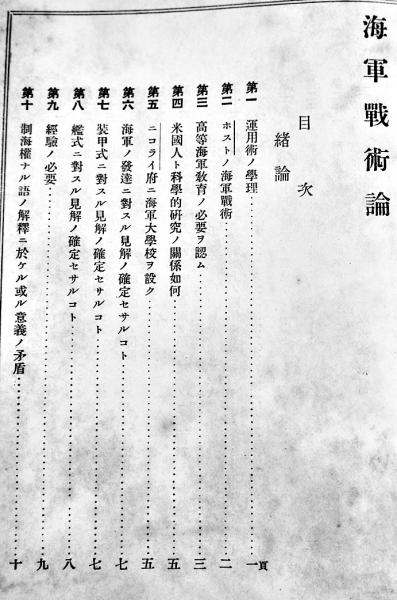 海軍戰術論
目次
緒論
第一 運用術ノ學理 一頁
第二 ホストノ海軍戰術 二
第三 高等海軍敎育ノ必要ヲ認ム 三
第四 米國人ト科學的硏究ノ關係如何 五
第五 ニコライ府ニ海軍大學校ヲ設ク 五
第六 海軍ノ發達ニ對スル見解ノ確定セサルコト 七
第七 裝甲式ニ對スル見解ノ確定セサルコト 七
第八 艦式ニ對スル見解ノ確定セサルコト 八
第九 經驗ノ必要 九
第十 制海權ナル語ノ解釋ニ於ケル或ル意義ノ矛盾 十